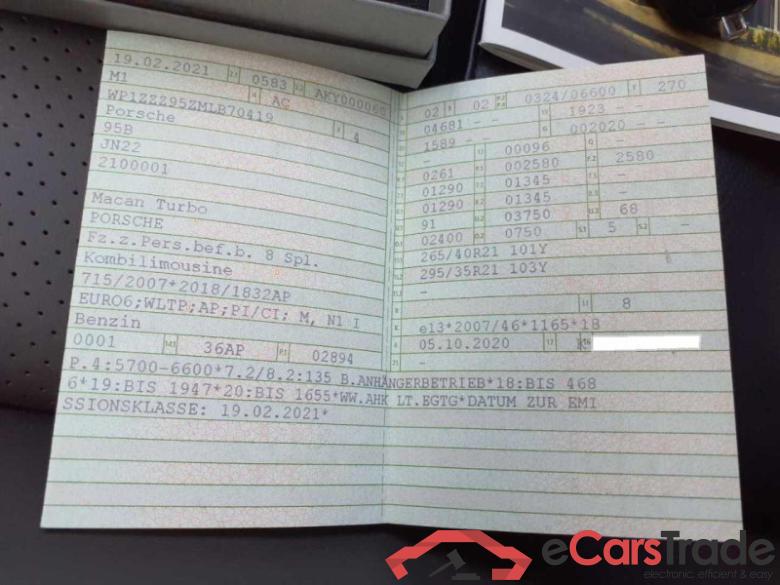 19.02.2021 0583 AKY000068
M1 AC
WP1ZZZ95ZMLB70419 4
Porsche
95B
JN22
2100001
Macan Turbo
PORSCHE
Fz.z.Pers.bef.b. 8 Spl.
Kombilimousine
715/2007*2018/1832AP
EURO6;WLTP;AP;PI/CI; M, N1 I
Benzin
0001 36AP 02894
02 02 0324/06600 270
04681 - - 1923 - -
1589 - - 002020 - -
- 00096 -
0261 002580 2580
01290 01345 -
01290 01345 -
91 03750 68
02400 0750 5 -
265/40R21 101Y
295/35R21 103Y
-
- 8
e13*2007/46*1165*18
05.10.2020
P.4:5700-6600*7.2/8.2:135 B.ANHÄNGERBETRIEB*18:BIS 468
6*19:BIS 1947*20:BIS 1655*WW.AHK LT.EGTG*DATUM ZUR EMI
SSIONSKLASSE: 19.02.2021*
eCarsTrade
electronic, efficient & easy